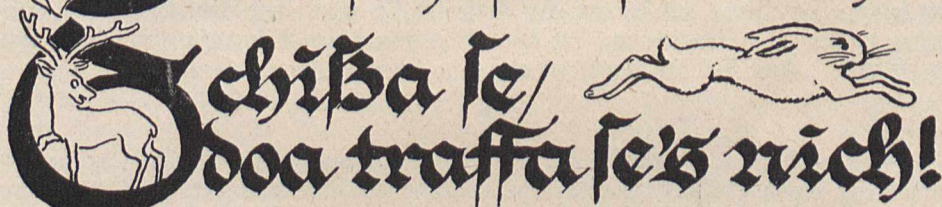 Schißa se,
doa traffa se's nich!